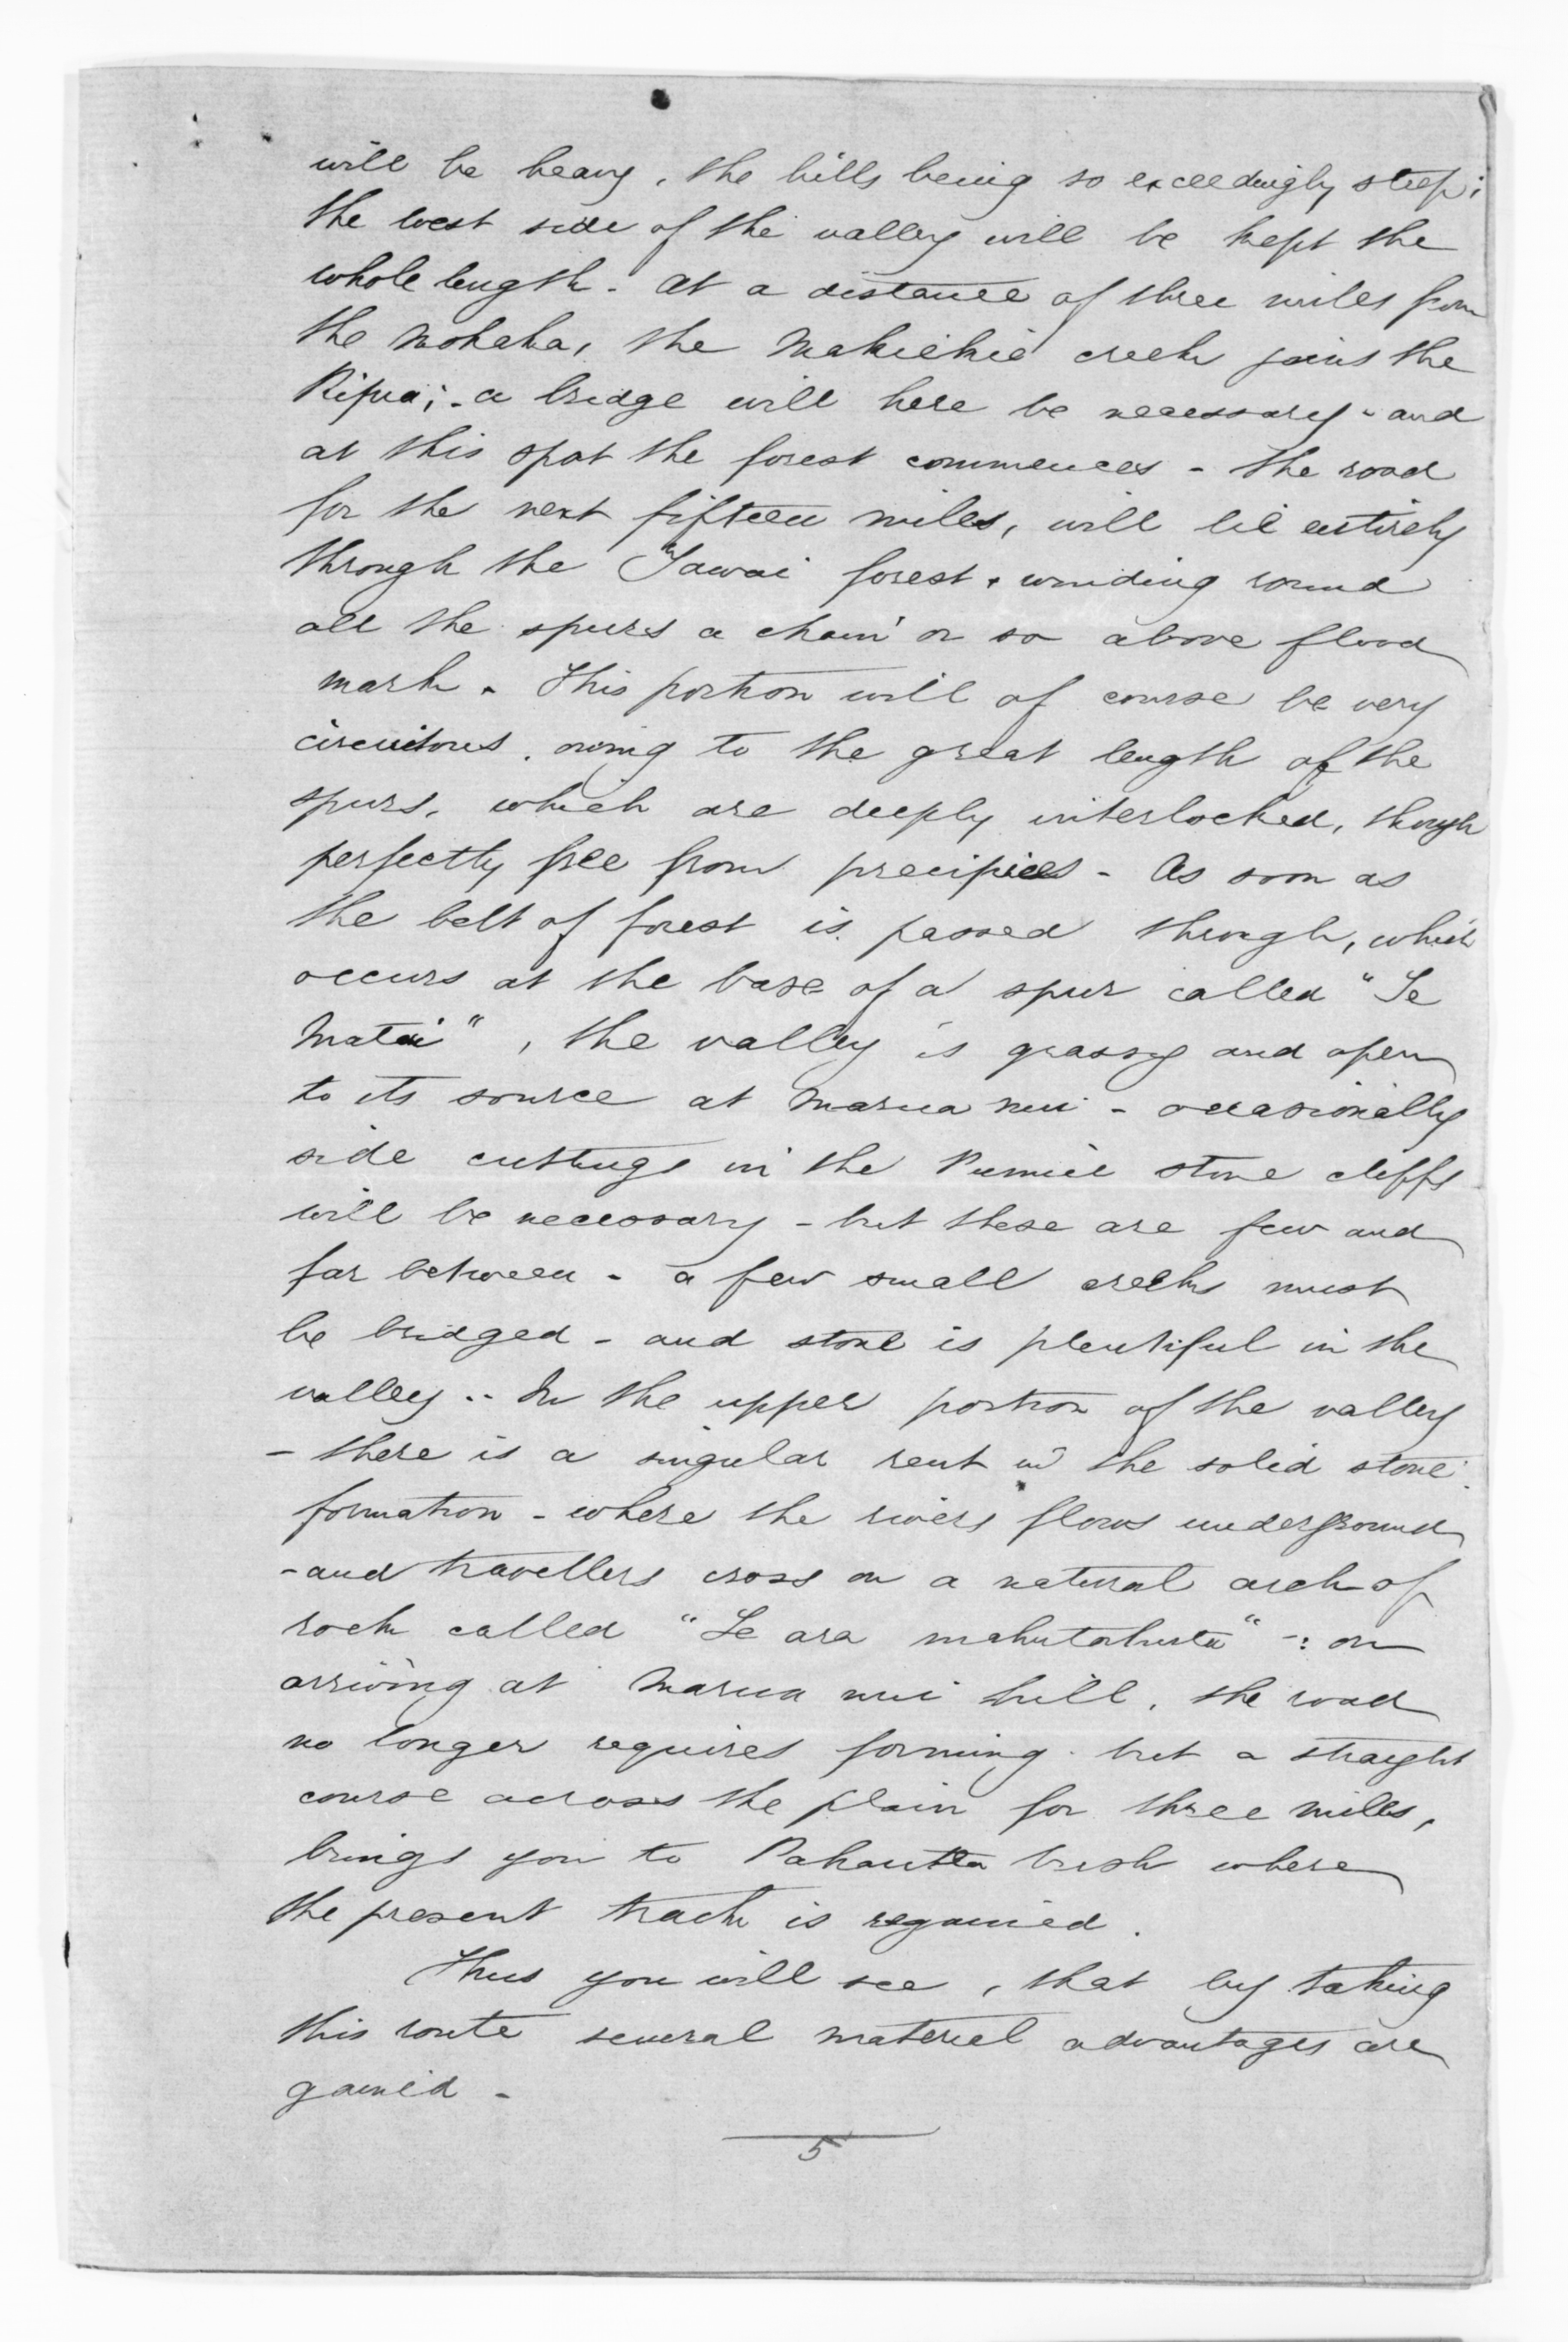 will be heavy, the hills being so exceedingly steep;
the west side of the valley will be kept the
whole length. At a distance of three miles from
the Mohaka, the Makiekie creek joins the
Ripia; - a bridge will here be necessary - and
at this spot the forest commences - The road
for the next fifteen miles, will lie entirely
through the Tawai forest, winding round
all the spurs a chain or so above flood
mark. This portion will of course be very
circuitous, owing to the great length of the
spurs, which are deeply interlocked, though
perfectly free from precipices - As soon as
the belt of forest is passed through, which
occurs at the base of a spur called "Te
Matai", the valley is grassy and open
to its source at Marua nui - occasionally
side cuttings in the Pumice stone cliffs
will be necessary - but these are few and
far between - a few small creeks must
be bridged - and stone is plentiful in the
valley .. In the upper portion of the valley
- there is a singular rent in the solid stone
formation - where the rivers flows underground
- and travellers cross on a natural arch of
rock called "Te ara" -: on
arriving at Marua nui hill, the road
no longer requires forming but a straight
course across the plain for three miles,
brings you to bush where
the present track is regained.
Thus you will see, that by taking
this route several material advantages are
gained -
5